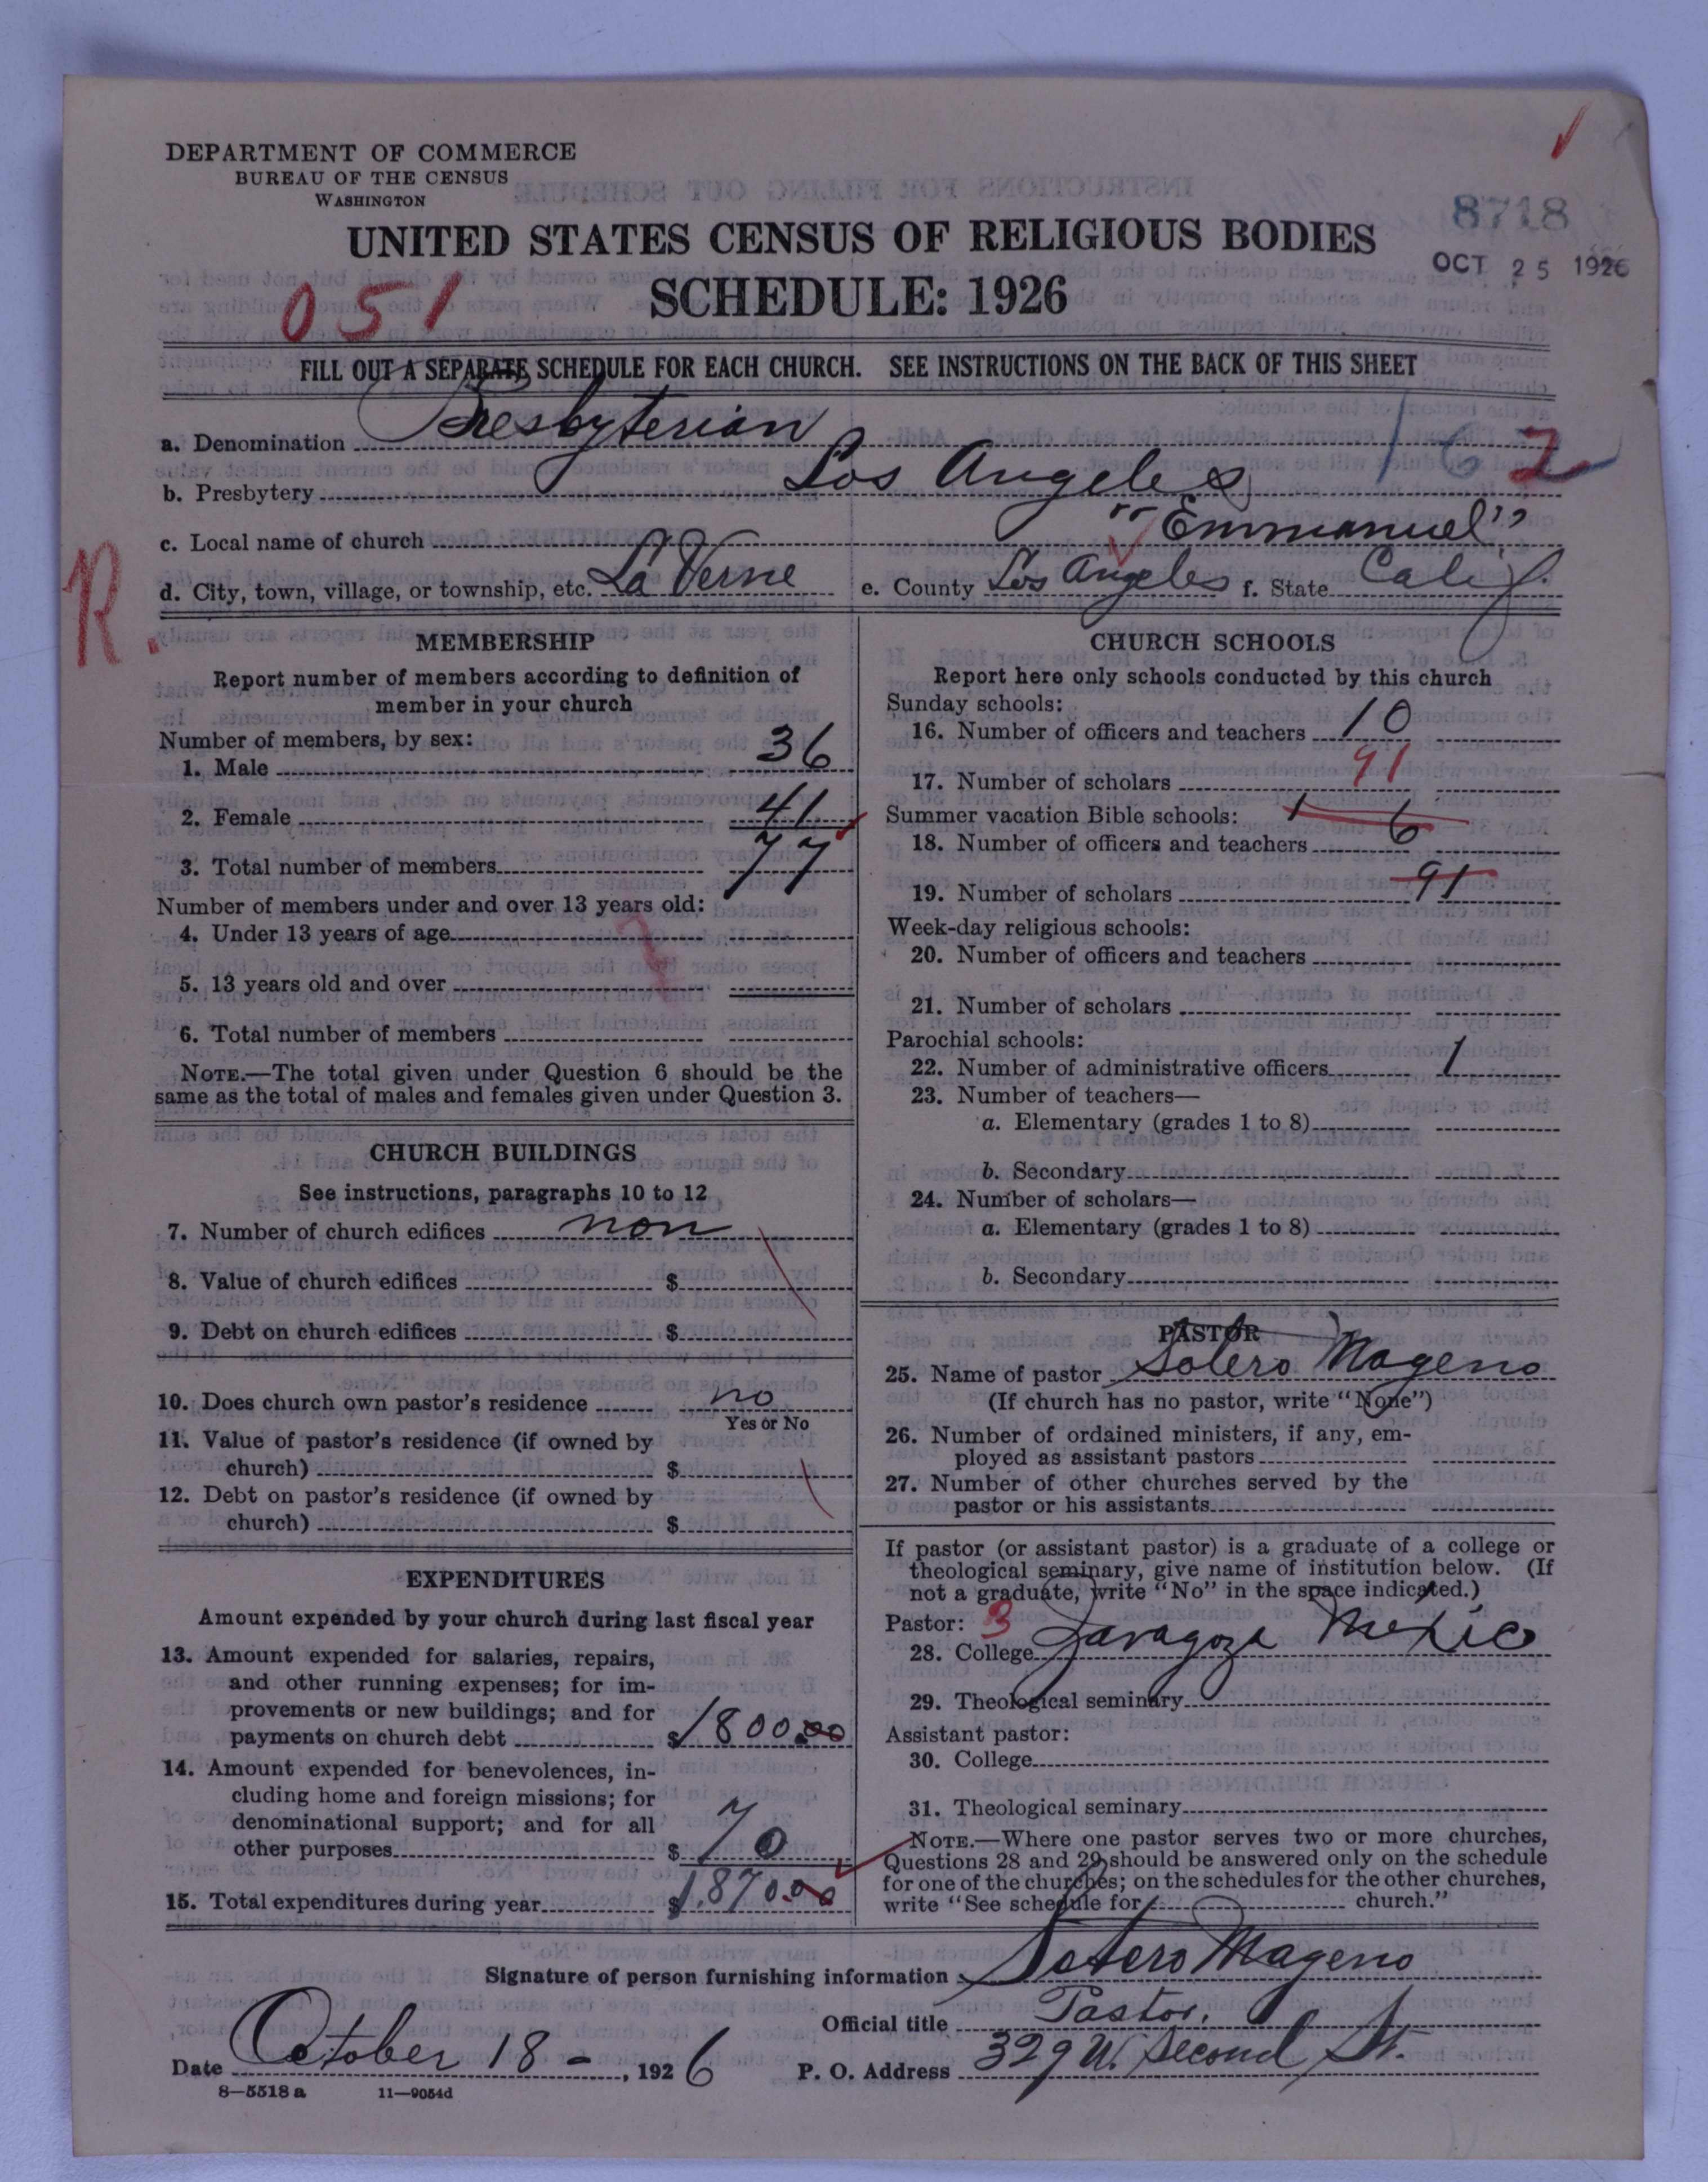 DEPARTMENT OF COMMERCE
BUREAU OF THE CENSUS
WASHINGTON
8718
UNITED STATES CENSUS OF RELIGIOUS BODIES
OCT 25 1926
SCHEDULE: 1926
051
FILL OUT A SEPARATE SCHEDULE FOR EACH CHURCH. SEE INSTRUCTIONS ON THE BACK OF THIS SHEET
a. Denomination Presbyterian
162
b. Presbytery Los Angeles
c. Local name of church "Emmanuel"
R.
d. City, town, village, or township, etc. La Verne e. County Los Angeles f. State Calif.
MEMBERSHIP
Report number of members according to definition of
member in your church
Number of members, by sex:
1. Male 36
2. Female 41
3. Total number of members 77
Number of members under and over 13 years old:
4. Under 13 years of age
5. 13 years old and over
6. Total number of members
NOTE.—The total given under Question 6 should be the
same as the total of males and females given under Question 3.
CHURCH BUILDINGS
See instructions, paragraphs 10 to 12
7. Number of church edifices non
8. Value of church edifices $
9. Debt on church edifices $
10. Does church own pastor's residence no
Yes or No
11. Value of pastor's residence (if owned by
church) $
12. Debt on pastor's residence (if owned by
church) $
EXPENDITURES
Amount expended by your church during last fiscal year
13. Amount expended for salaries, repairs,
and other running expenses; for im-
provements or new buildings; and for
payments on church debt $1800.00
14. Amount expended for benevolences, in-
cluding home and foreign missions; for
denominational support; and for all
other purposes $70
15. Total expenditures during year $1,870.00
CHURCH SCHOOLS
Report here only schools conducted by this church
Sunday schools:
16. Number of officers and teachers 10
17. Number of scholars 91
Summer vacation Bible schools: 1
18. Number of officers and teachers 6
19. Number of scholars 91
Week-day religious schools:
20. Number of officers and teachers
21. Number of scholars
Parochial schools:
22. Number of administrative officers 1
23. Number of teachers—
a. Elementary (grades 1 to 8)
b. Secondary
24. Number of scholars—
a. Elementary (grades 1 to 8)
b. Secondary
PASTOR
25. Name of pastor Sotero Mageno
(If church has no pastor, write "None")
26. Number of ordained ministers, if any, em-
ployed as assistant pastors
27. Number of other churches served by the
pastor or his assistants
If pastor (or assistant pastor) is a graduate of a college or
theological seminary, give name of institution below. (If
not a graduate, write "No" in the space indicated.)
Pastor: 3
28. College Zaragoza Mexico
29. Theological seminary
Assistant pastor:
30. College
31. Theological seminary
NOTE.—Where one pastor serves two or more churches,
Questions 28 and 29 should be answered only on the schedule
for one of the churches; on the schedules for the other churches,
write "See schedule for church."
Signature of person furnishing information Sotero Mageno
Official title Pastor.
Date October 18 - , 1926 P. O. Address 329 W. Second St.
8—5518 a 11—9054d